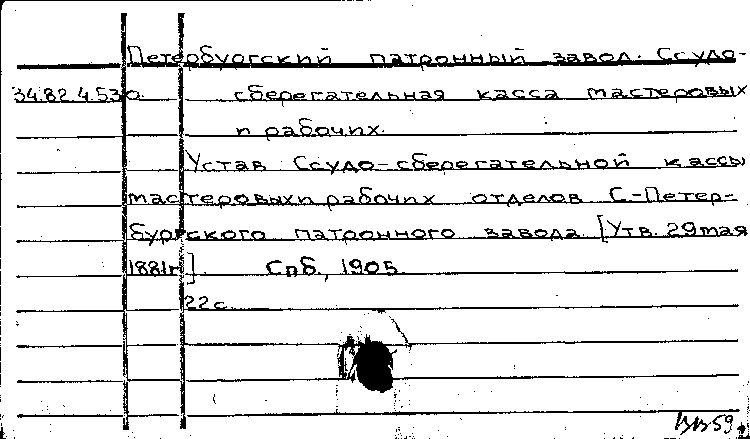 Петербургский патронный завод. Ссудо-
34.82.4.530. сберегательная касса мастеровых
и рабочих.
Устав Ссудо-сберегательной кассы
мастеровых и рабочих отделов С-Петер-
бургского патронного завода. [Утв. 29 мая
1881г.] Спб, 1905.
22 с.